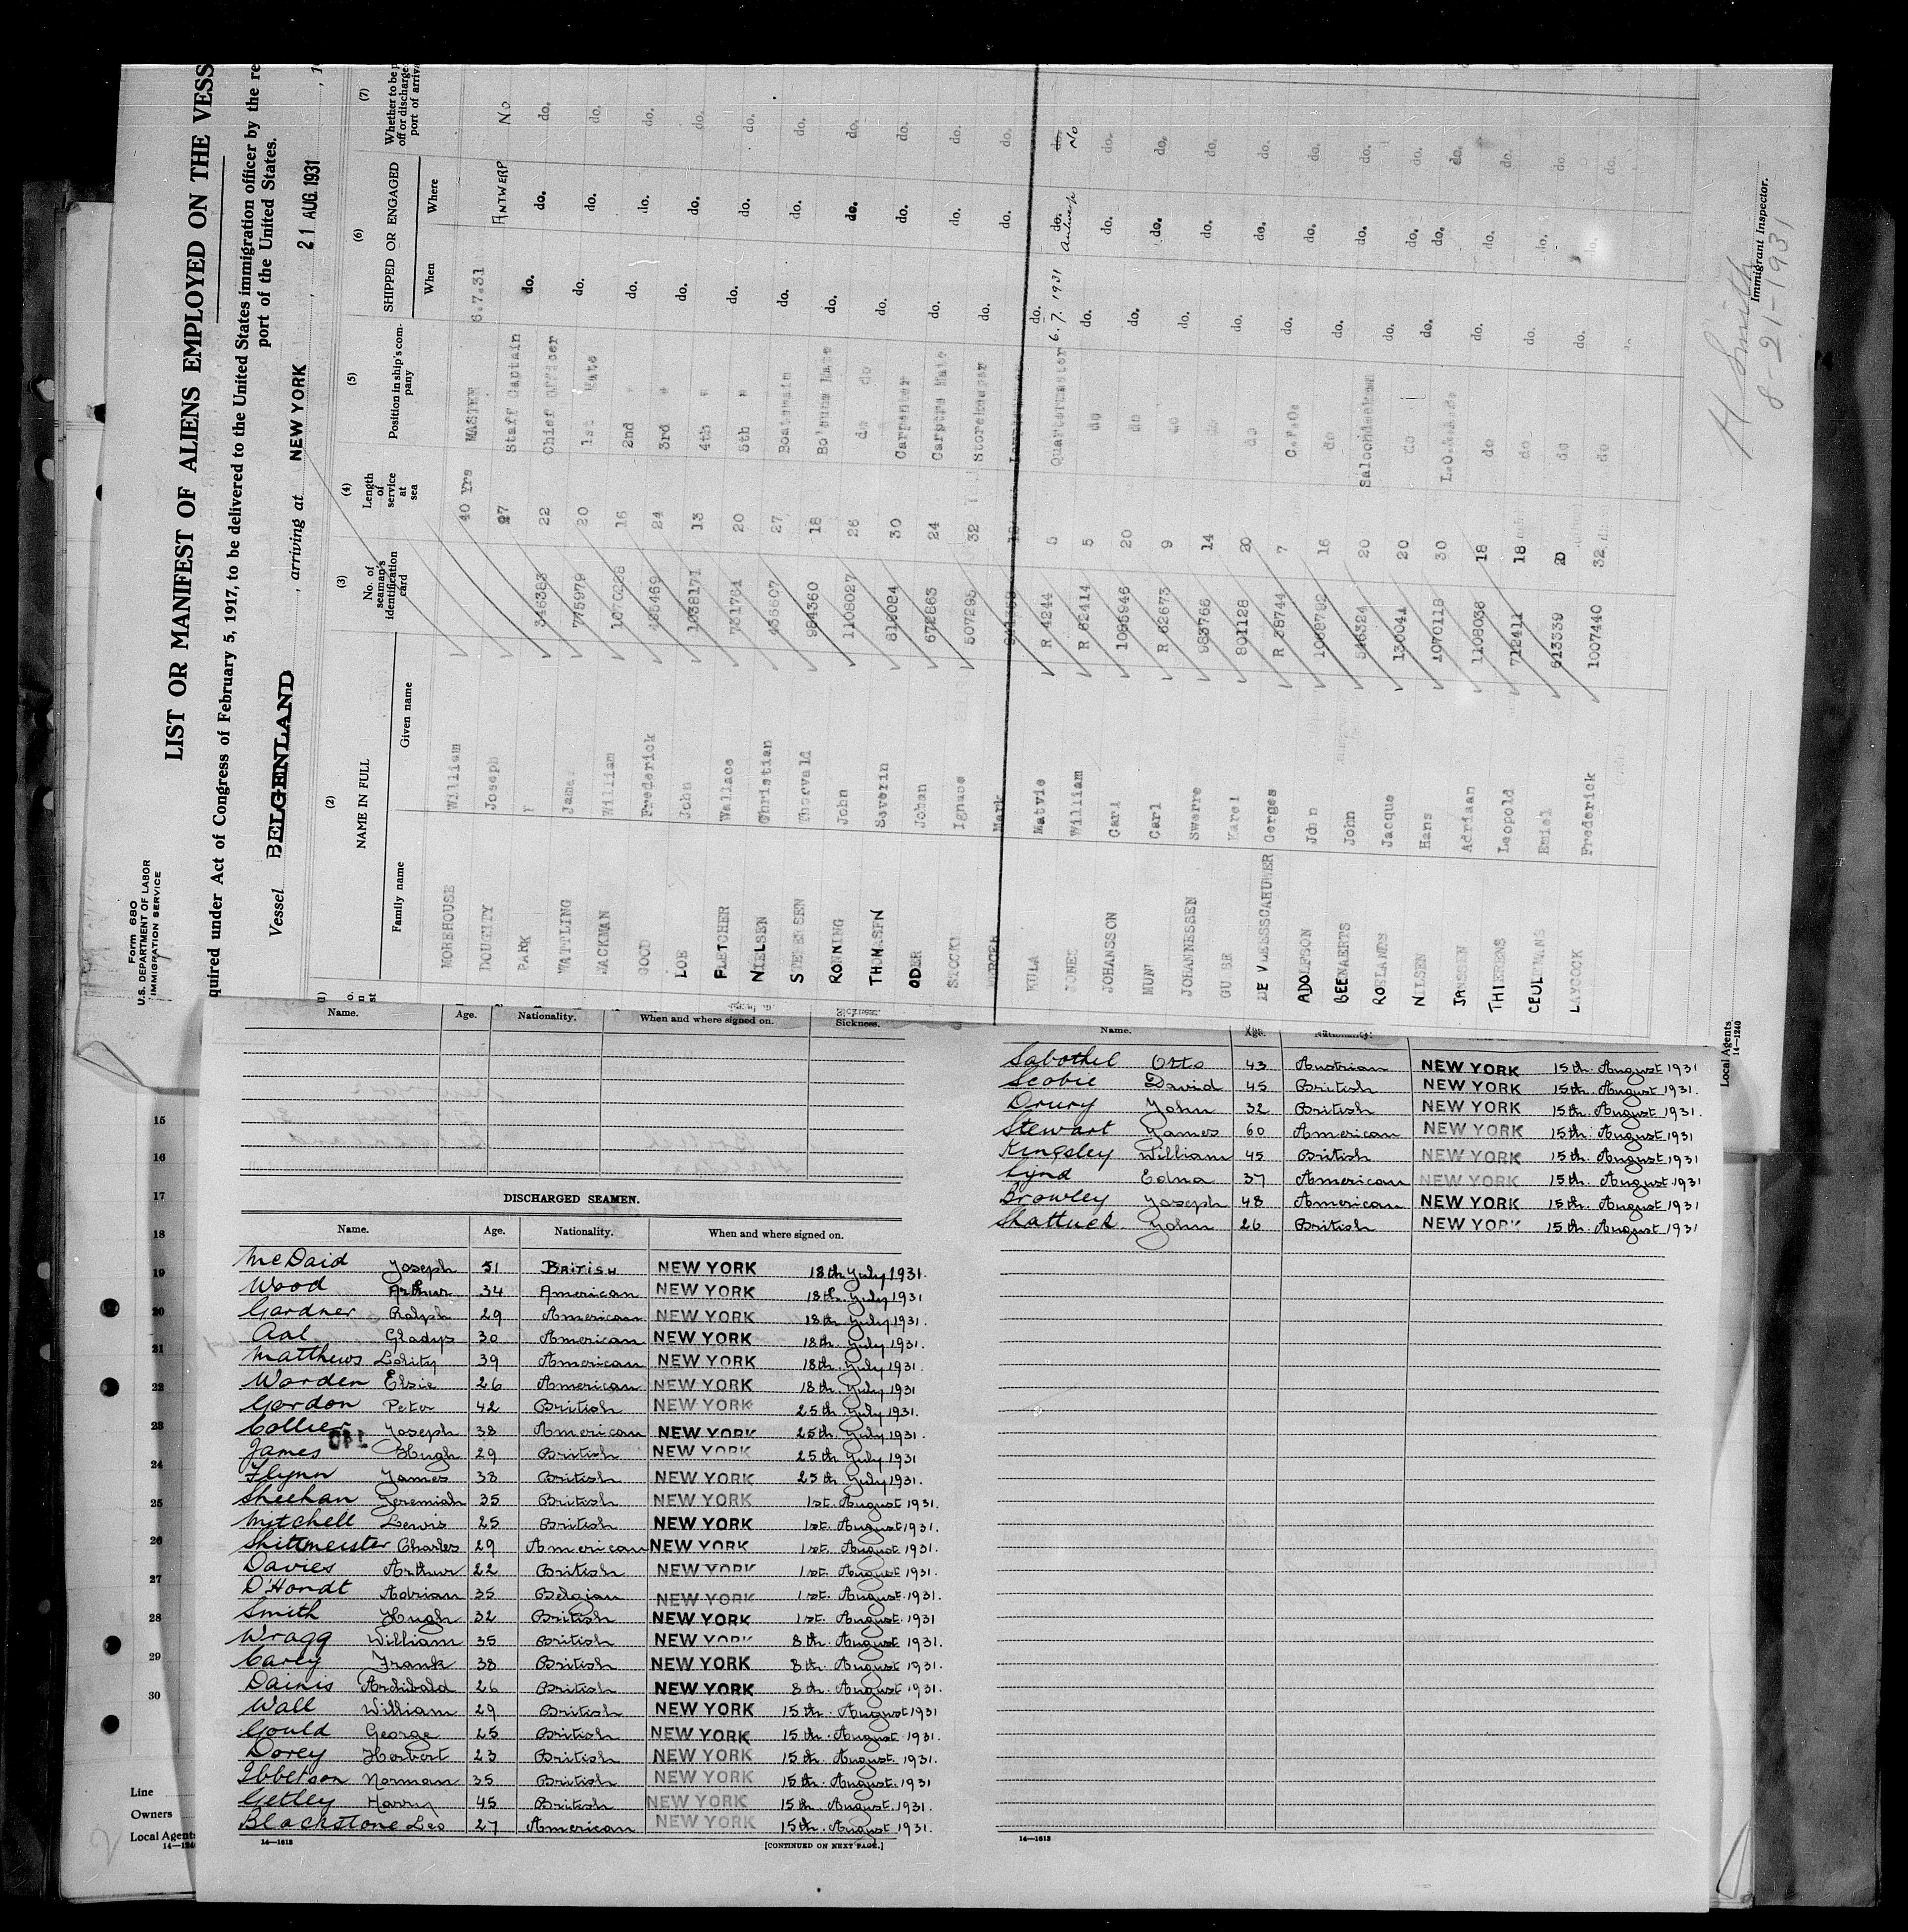 Form 680
U.S. DEPARTMENT OF LABOR
IMMIGRATION SERVICE
LIST OR MANIFEST OF ALIENS EMPLOYED ON THE VESS
quired under Act of Congress of February 5, 1917, to be delivered to the United States immigration officer by the re
port of the United States.
Vessel BELGENLAND, arriving at NEW YORK, 21 AUG. 1931, 1
(2) (3) (4) (5) (6) (7)
NAME IN FULL No. of seaman's identification card Length of service at sea Position in ship's company SHIPPED OR ENGAGED Whether to be p off or discharge port of arriva
Family name Given name When Where
MOREHOUSE William 40 yrs MASTER 6.7.31 ANTWERP No
DOUGHTY Joseph 27 Staff Captain do. do. do.
PARK 346383 22 Chief Officer do. do. do.
WATTLING James 775979 20 1st Mate do. do. do.
JACKMAN William 1070228 16 2nd " do. do. do.
GOOD Frederick 24 3rd " do. do. do.
LOE John 1038171 13 4th " do. do. do.
FLETCHER Wallace 731761 20 5th " do. do. do.
NIELSEN Christian 436607 27 Boatswain do. do. do.
Thorvald 984360 18 Bo'suns Mate do. do. do.
RONNING John 1108027 26 do do do. do. do.
THOMASEN Severin 819084 30 Carpenter do. do. do.
ODER Johan 672863 24 Carptrs Mate do. do. do.
Ignace 507295 32 Storekeeper do. do. do.
Mark
KULA Matvie R 4244 5 Quartermaster 6.7.1931 Antwerp No
JONES William R 62414 5 do do. do. do.
JOHANSSON Carl 1095946 20 do do. do. do.
Carl R 62673 9 do do. do. do.
JOHANNESSEN Swerre 983766 14 do do. do. do.
Karel 801128 20 do do. do. do.
DE VLEESSCAHUWER Gorges R 38744 7 do. do. do.
ADOLFSON John 1068792 16 do do. do. do.
BEENAERTS John 546324 20 do. do. do.
ROELANDS Jacque 130041 20 do do. do. do.
NILSEN Hans 1070118 30 do. do. do.
JANSSEN Adriaan 1108036 18 do do. do. do.
THIERENS Leopold 712411 18 do do. do. do.
CEULEMANS Emiel 613339 20 do do. do. do.
LAYCOCK Frederick 1007440 32 do
H Smith
Immigrant Inspector.
8-21-1931
Local Agents
14—1240
Name. Age. Nationality. When and where signed on. Sickness.
15
16
17
18
19
20
21
22
23
24
25
26
27
28
29
30
Line
Owners
Local Agents
DISCHARGED SEAMEN.
Name. Age. Nationality. When and where signed on.
McDaid Joseph 51 BRITISH NEW YORK 18th July 1931.
Wood Arthur 34 American NEW YORK 18th July 1931
Gardner Ralph 29 American NEW YORK 18th July 1931.
Aal Gladys 30 American NEW YORK 18th July 1931.
Matthews 39 American NEW YORK 18th July 1931.
Warden Elsie 26 American NEW YORK 18th July 1931
Gordon Peter 42 British NEW YORK 25th July 1931.
Collier Joseph 38 American NEW YORK 25th July 1931.
James Hugh 29 British NEW YORK 25th July 1931
Flynn James 38 British NEW YORK 25th July 1931.
Sheehan Jeremiah 35 British NEW YORK 1st. August 1931.
Mitchell Lewis 25 British NEW YORK 1st. August 1931.
Shittmeister Charles 29 American NEW YORK 1st. August 1931.
Davies Arthur 22 British NEW YORK 1st. August 1931.
D'Hondt Adrian 35 Belgian NEW YORK 1st. August 1931.
Smith Hugh 32 British NEW YORK 1st. August 1931
Wragg William 35 British NEW YORK 8th. August 1931.
Carey Frank 38 British NEW YORK 8th. August 1931.
Dainis Archibald 26 British NEW YORK 8th. August 1931.
Wall William 29 British NEW YORK 15th. August 1931
Gould George 25 British NEW YORK 15th. August 1931.
Dorey Herbert 23 British NEW YORK 15th. August. 1931.
Ibbetson Norman 35 British NEW YORK 15th. August. 1931
Getley Harry 45 British NEW YORK 15th. August. 1931.
Blackstone Leo 27 American NEW YORK 15th. August 1931.
14—1613 [CONTINUED ON NEXT PAGE.]
Name. Age. Nationality.
Sabothil Otto 43 Austrian NEW YORK 15th. August 1931
Scobie David 45 British NEW YORK 15th. August 1931.
Drury John 32 British NEW YORK 15th. August 1931.
Stewart James 60 American NEW YORK 15th. August 1931
Kingsley William 45 British NEW YORK 15th. August 1931
Lynd Edna 37 American NEW YORK 15th. August 1931
Crowley Joseph 48 American NEW YORK 15th. August 1931
Shattuck John 26 British NEW YORK 15th. August 1931
14—1613